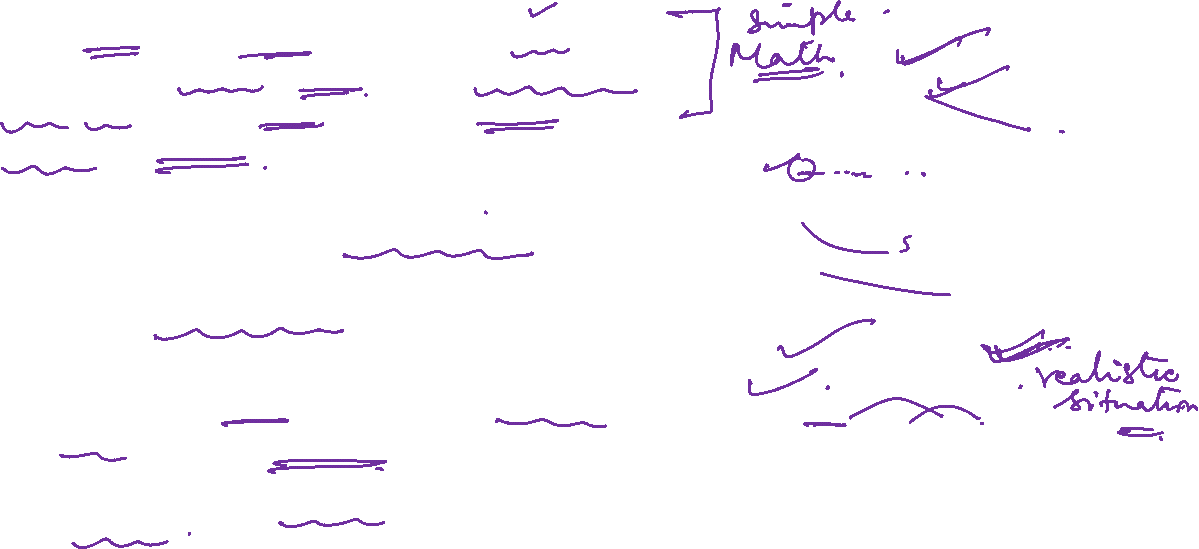 Simple
Math.
realistic
situation